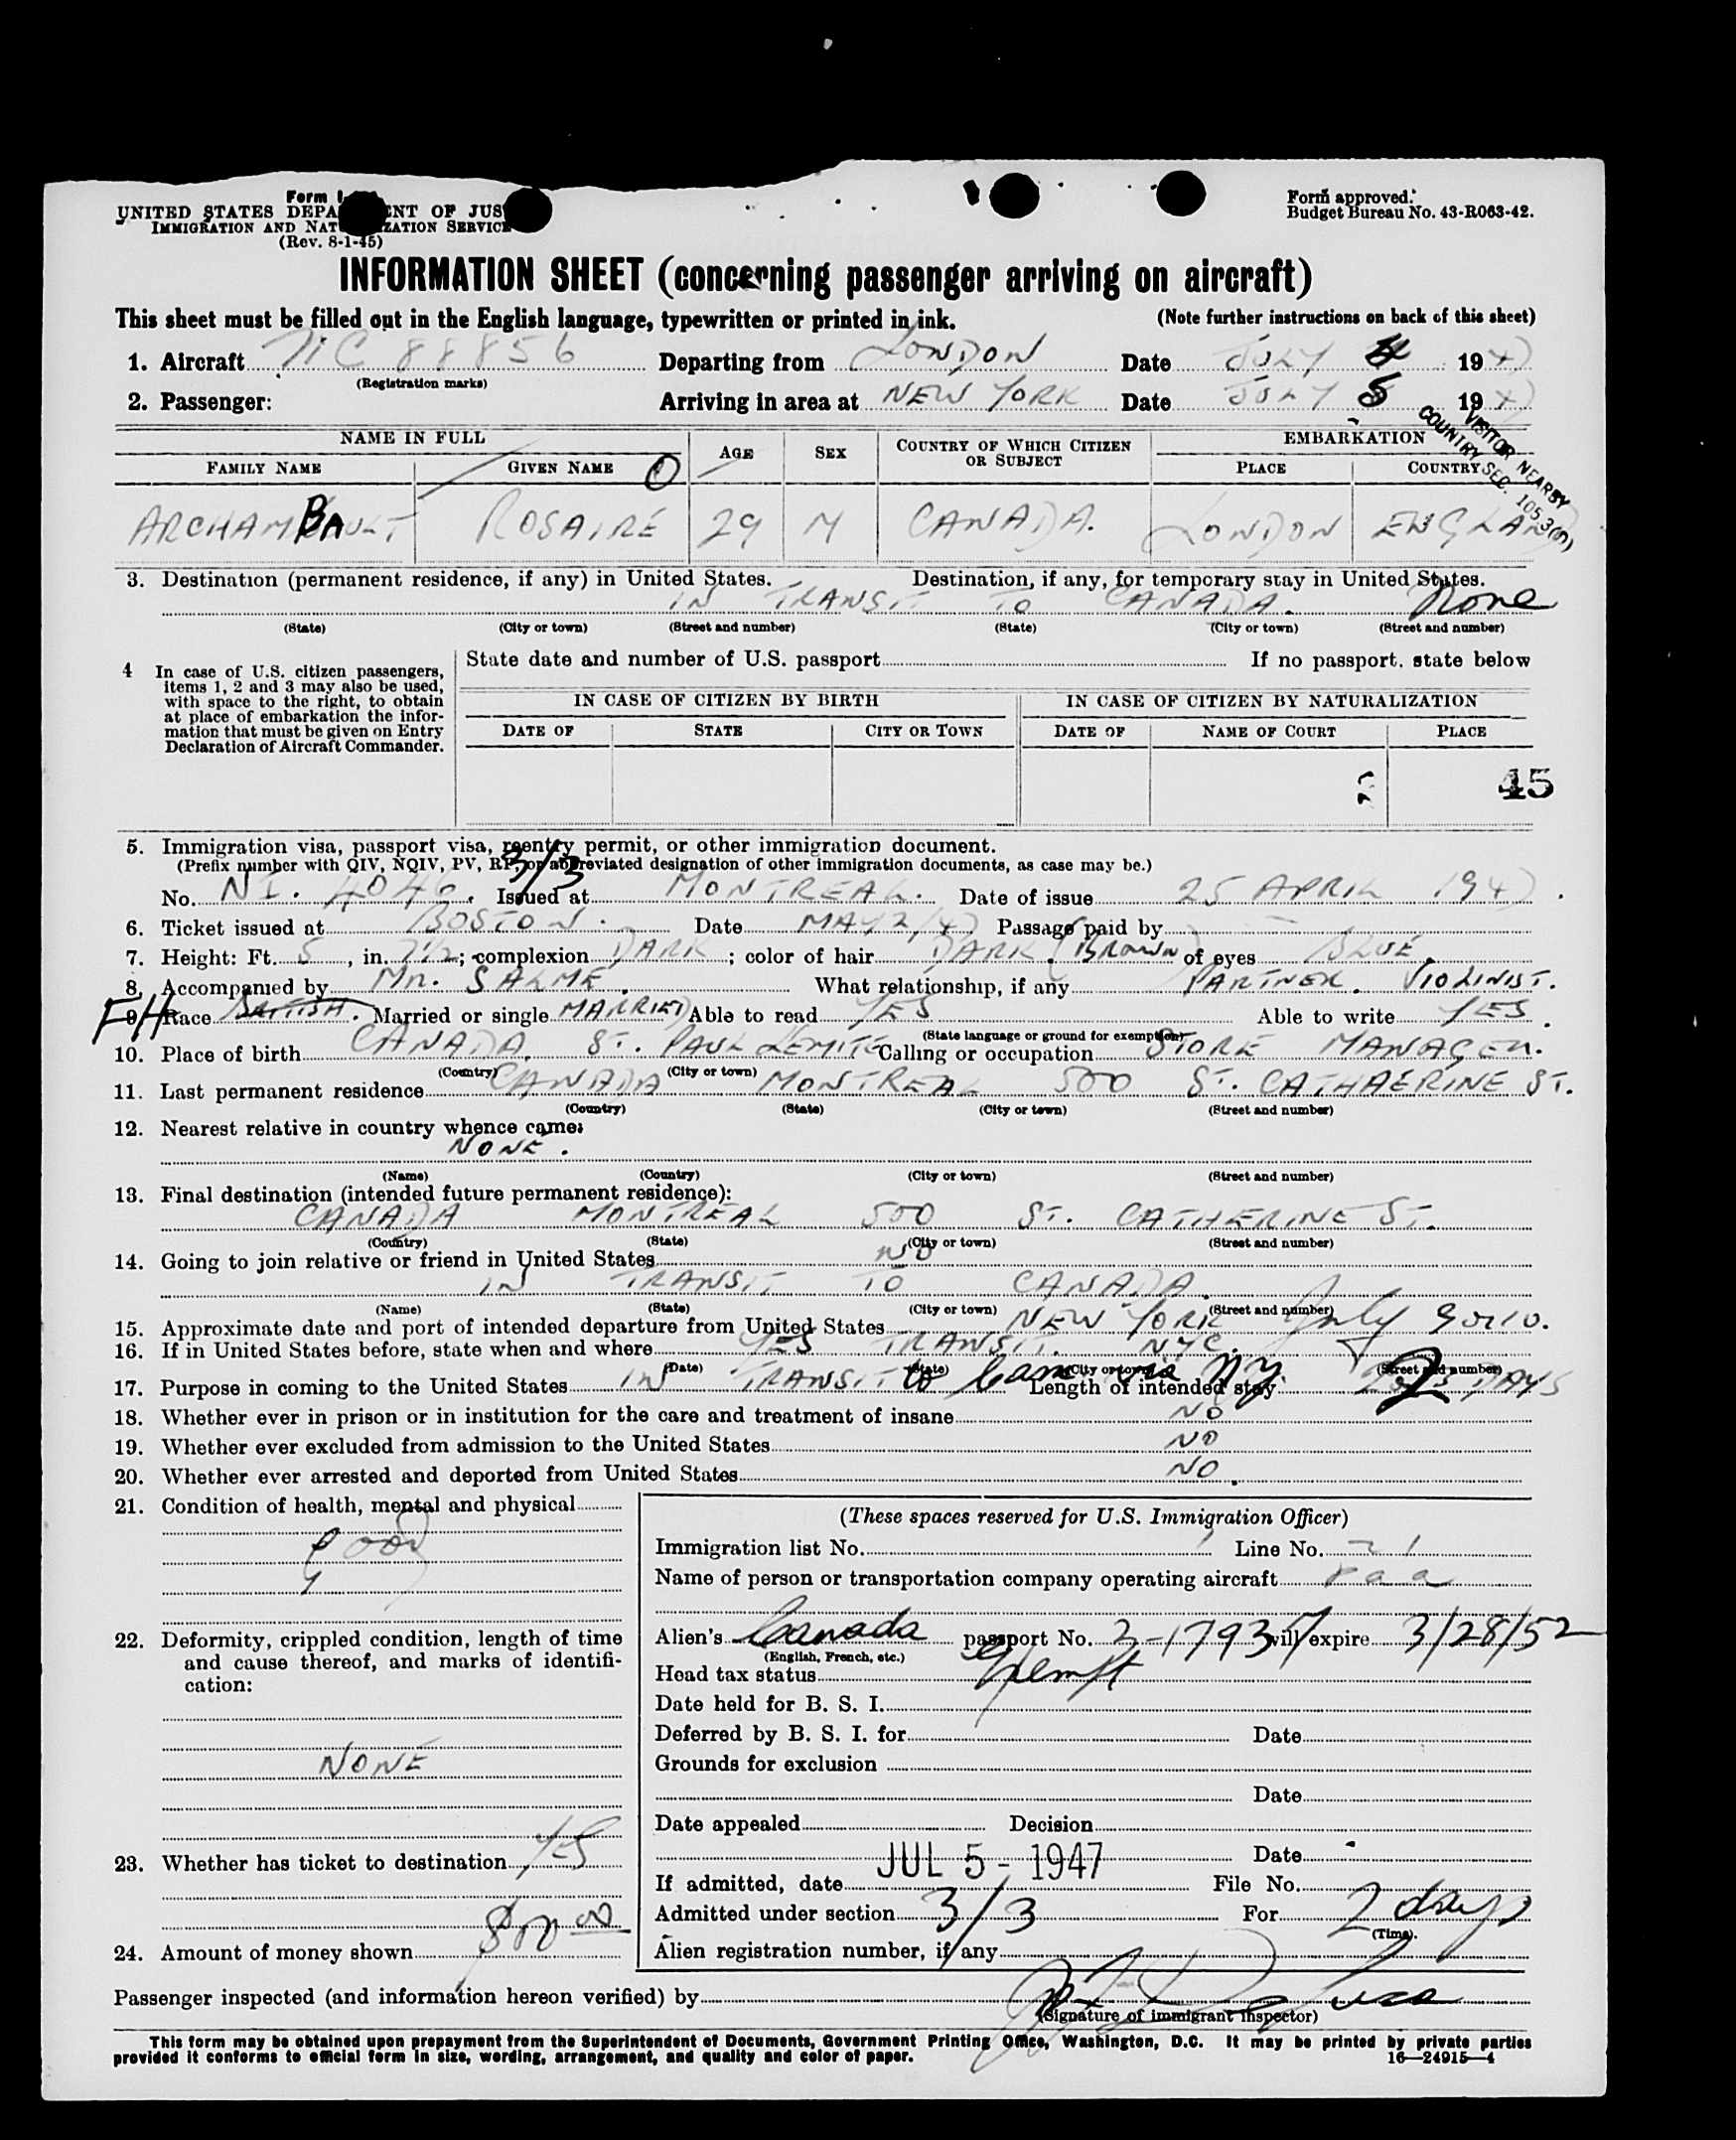 Form I
UNITED STATES DEPA NT OF JUS
IMMIGRATION AND NAT ZATION SERVICE
(Rev. 8-1-45)
Form approved.
Budget Bureau No. 43-R063-42.
INFORMATION SHEET (concerning passenger arriving on aircraft)
This sheet must be filled out in the English language, typewritten or printed in ink. (Note further instructions on back of this sheet)
1. Aircraft NC 88856 Departing from LONDON Date JULY 4 1947
(Registration marks)
2. Passenger: Arriving in area at NEW YORK Date JULY 5 1947
VISITOR NEARBY
COUNTRY SEC. 105.3(b)
NAME IN FULL AGE SEX COUNTRY OF WHICH CITIZEN OR SUBJECT EMBARKATION
FAMILY NAME GIVEN NAME PLACE COUNTRY
ARCHAMBAULT ROSAIRE 29 M CANADA. LONDON ENGLAND
3. Destination (permanent residence, if any) in United States. Destination, if any, for temporary stay in United States.
IN TRANSIT TO CANADA. None
(State) (City or town) (Street and number) (State) (City or town) (Street and number)
4 In case of U.S. citizen passengers, items 1, 2 and 3 may also be used, with space to the right, to obtain at place of embarkation the information that must be given on Entry Declaration of Aircraft Commander.
State date and number of U.S. passport If no passport, state below
IN CASE OF CITIZEN BY BIRTH IN CASE OF CITIZEN BY NATURALIZATION
DATE OF STATE CITY OR TOWN DATE OF NAME OF COURT PLACE
45
5. Immigration visa, passport visa, reentry permit, or other immigration document.
(Prefix number with QIV, NQIV, PV, RP, or abbreviated designation of other immigration documents, as case may be.)
3/3
No. NI. 4046. Issued at MONTREAL. Date of issue 25 APRIL 1947.
6. Ticket issued at BOSTON. Date MAY 2/47 Passage paid by
7. Height: Ft. 5, in. 7 1/2; complexion DARK; color of hair DARK. (BROWN) of eyes BLUE.
8. Accompanied by Mr. SALME. What relationship, if any PARTNER. VIOLINIST.
FH
9. Race BRITISH. Married or single MARRIED Able to read YES Able to write YES.
(State language or ground for exemption)
10. Place of birth CANADA. ST. PAUL Calling or occupation STORE MANAGER.
(Country) (City or town)
11. Last permanent residence CANADA MONTREAL 500 ST. CATHAERINE ST.
(Country) (State) (City or town) (Street and number)
12. Nearest relative in country whence came:
NONE.
(Name) (Country) (City or town) (Street and number)
13. Final destination (intended future permanent residence):
CANADA MONTREAL 500 ST. CATHERINE ST.
(Country) (State) (City or town) (Street and number)
14. Going to join relative or friend in United States NO
IN TRANSIT TO CANADA.
(Name) (State) (City or town) (Street and number)
15. Approximate date and port of intended departure from United States NEW YORK July 9 or 10.
16. If in United States before, state when and where YES TRANSIT. NYC.
(Date) (State) (City or town) (Street and number)
17. Purpose in coming to the United States IN TRANSIT to Can via NY. Length of intended stay 2 DAYS
18. Whether ever in prison or in institution for the care and treatment of insane NO
19. Whether ever excluded from admission to the United States NO
20. Whether ever arrested and deported from United States NO.
21. Condition of health, mental and physical
good
22. Deformity, crippled condition, length of time and cause thereof, and marks of identification:
NONE
23. Whether has ticket to destination YES
24. Amount of money shown
(These spaces reserved for U.S. Immigration Officer)
Immigration list No. 1 Line No. 21
Name of person or transportation company operating aircraft P a a
Alien's Canada passport No. 3-17937 will expire 3/28/52
(English, French, etc.)
Head tax status Exempt
Date held for B. S. I.
Deferred by B. S. I. for Date
Grounds for exclusion
Date
Date appealed Decision
Date
If admitted, date JUL 5 - 1947 File No.
Admitted under section 3/3 For 2 days
(Time).
Alien registration number, if any
Passenger inspected (and information hereon verified) by
(Signature of immigrant inspector)
This form may be obtained upon prepayment from the Superintendent of Documents, Government Printing Office, Washington, D.C. It may be printed by private parties
provided it conforms to official form in size, wording, arrangement, and quality and color of paper. 16—24915—4